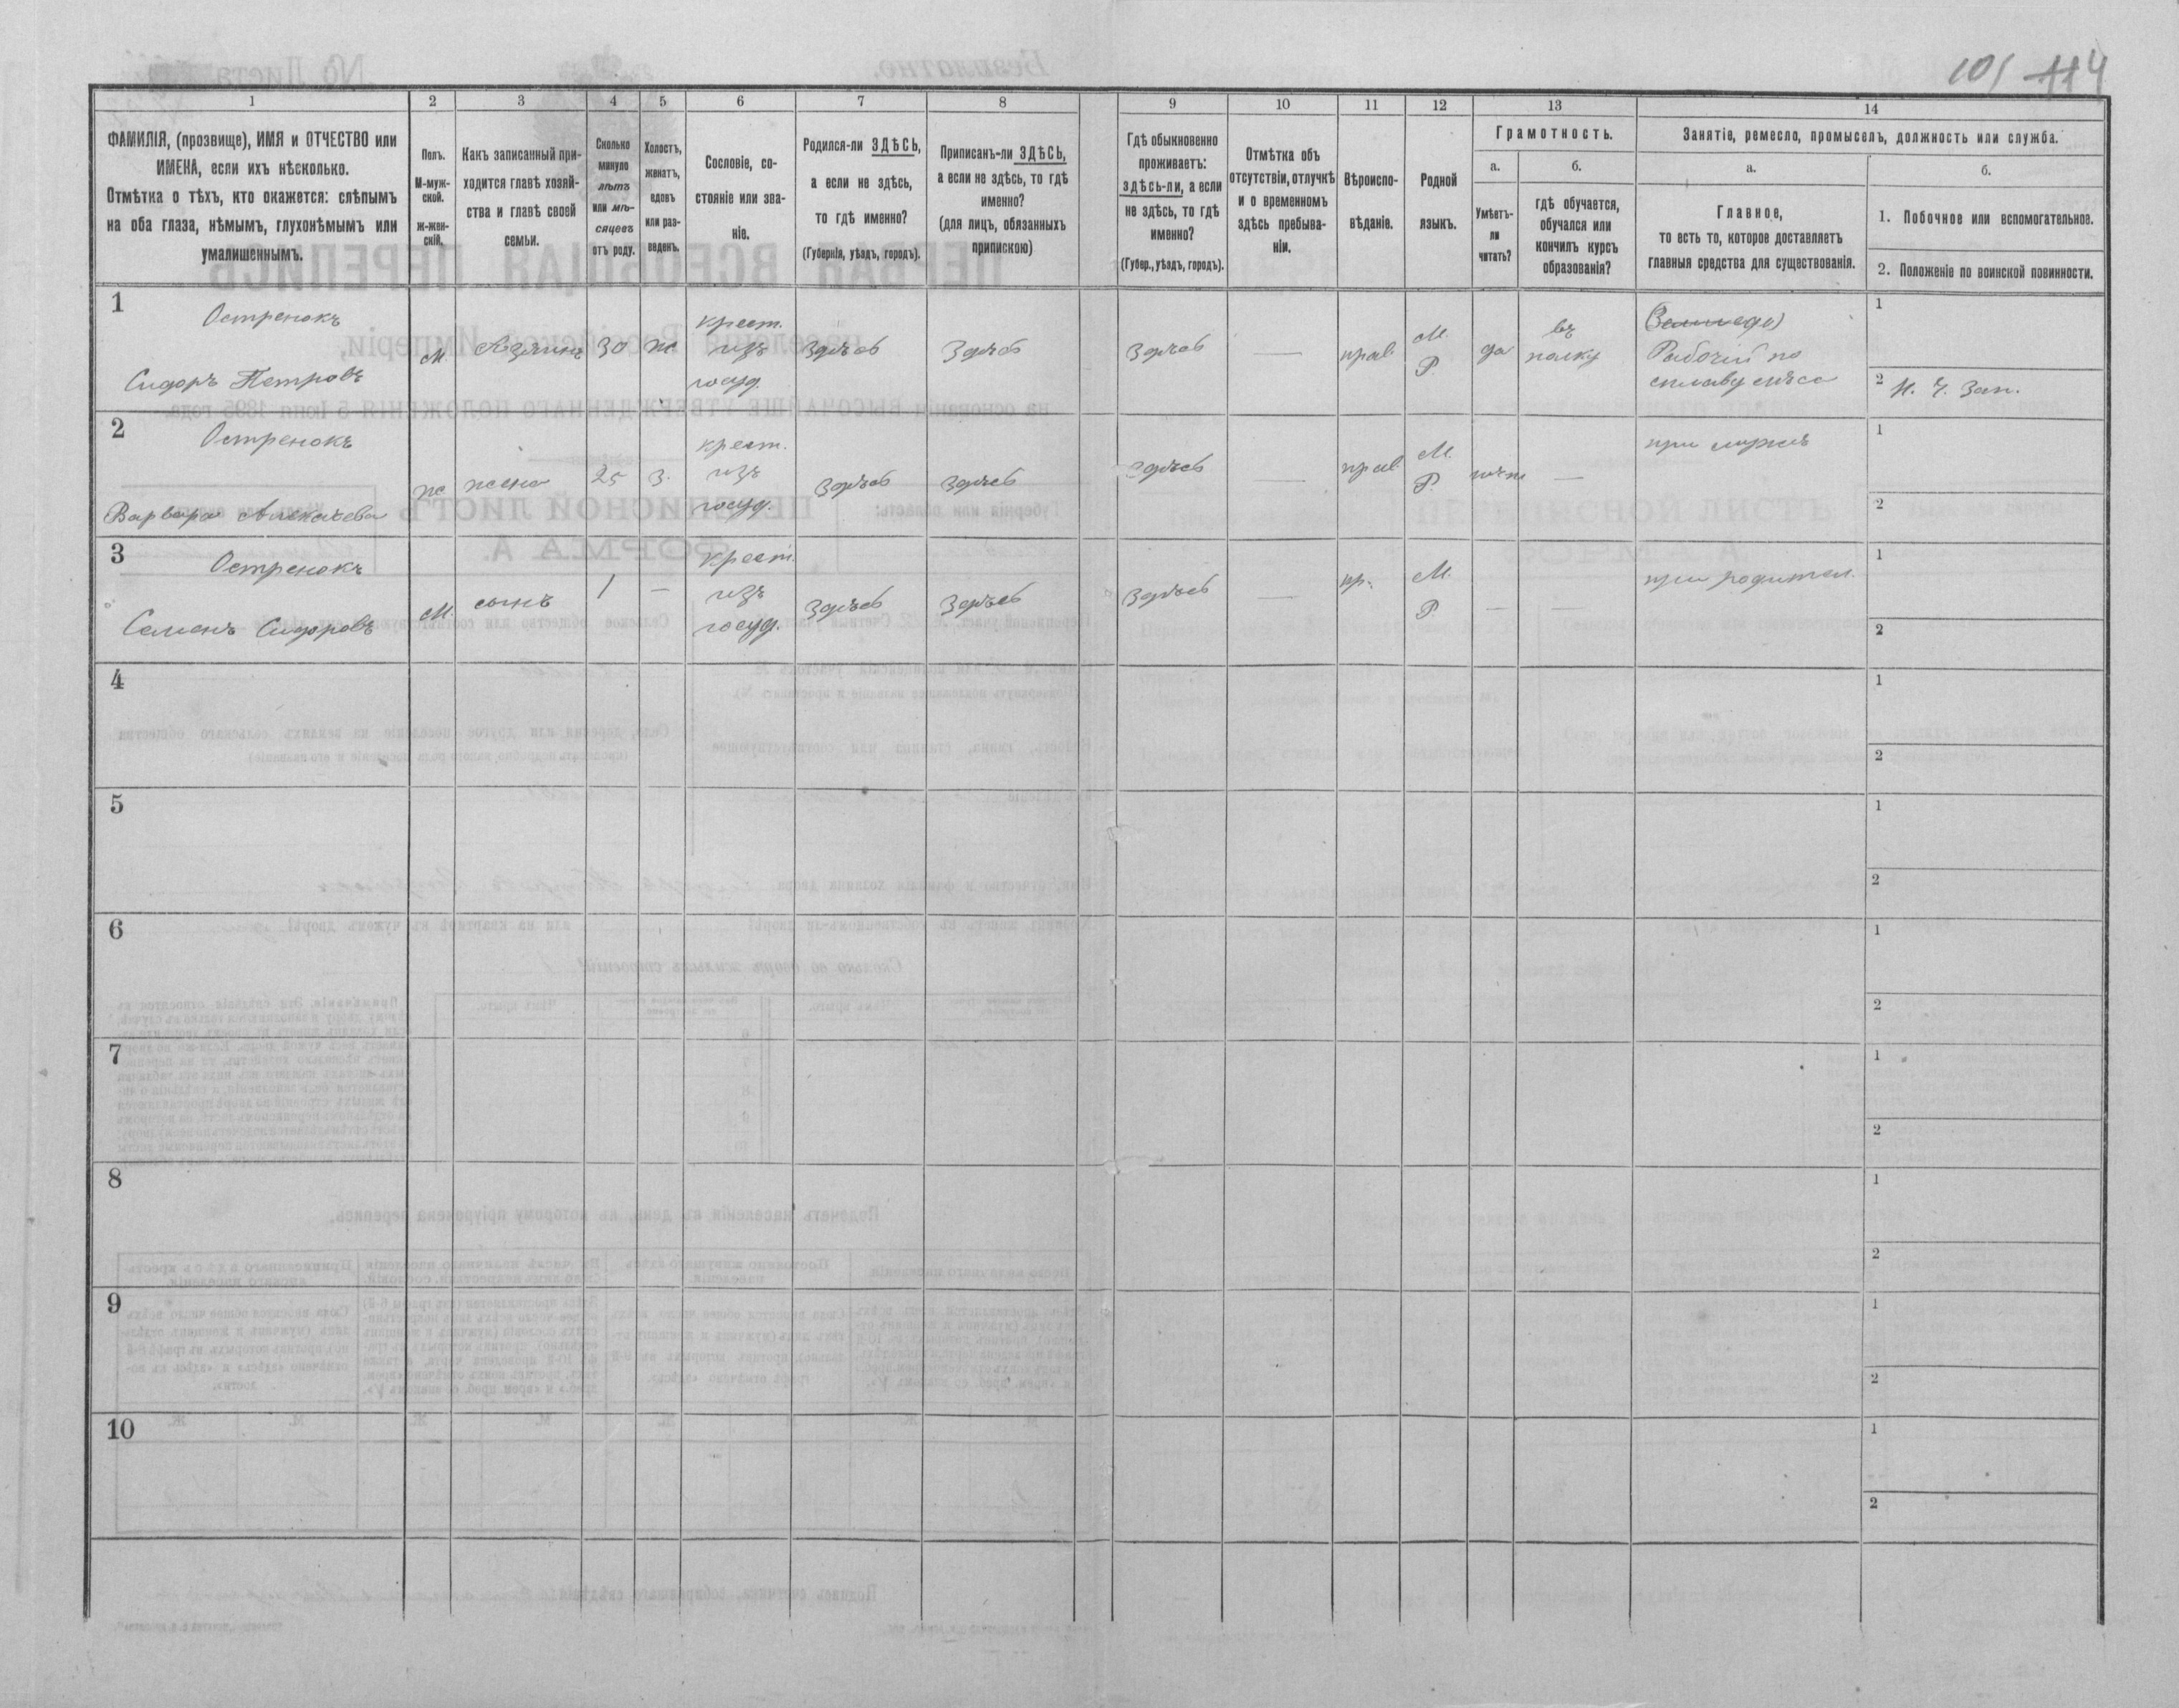 101 114
1
2
3
4
5
6
7
8
9
10
11
12
13
14
ФАМИЛІЯ, (прозвище), ИМЯ и ОТЧЕСТВО или
ИМЕНА, если ихъ нѣсколько.
Отмѣтка о тѣхъ, кто окажется: слѣпымъ
на оба глаза, нѣмымъ, глухонѣмымъ или
умалишеннымъ.
Полъ.
М-муж-
ской.
Ж-жен-
скій.
Какъ записанный при-
ходится главѣ хозяй-
ства и главѣ своей
семьи.
Сколько
минуло
лѣтъ
или мѣ-
сяцевъ
отъ роду.
Холостъ,
женатъ,
вдовъ
или раз-
веденъ.
Сословіе, со-
стояніе или зва-
ніе.
Родился-ли ЗДѢСЬ,
а если не здѣсь,
то гдѣ именно?
(Губернія, уѣздъ, городъ).
Приписанъ-ли ЗДѢСЬ,
а если не здѣсь, то гдѣ
именно?
(для лицъ, обязанныхъ
припискою)
Гдѣ обыкновенно
проживаетъ:
здѣсь-ли, а если
не здѣсь, то гдѣ
именно?
(Губер., уѣздъ, городъ).
Отмѣтка объ
отсутствіи, отлучкѣ
и о временномъ
здѣсь пребыва-
ніи.
Вѣроиспо-
вѣданіе.
Родной
языкъ.
Грамотность.
а.
Умѣетъ-
ли
читать?
б.
гдѣ обучается,
обучался или
кончилъ курсъ
образованія?
Занятіе, ремесло, промыселъ, должность или служба.
а.
Главное,
то есть то, которое доставляетъ
главныя средства для существованія.
б.
1. Побочное или вспомогательное.
2. Положеніе по воинской повинности.
1
Остренокъ
Сидоръ Петровъ
М
хозяинъ
30
ж
крест.
изъ
госуд.
Здѣсь
Здѣсь
Здѣсь
—
прав
М.
Р
да
въ
полку
Рабочій по
сплаву лѣса
1
2 Н. Ч. Зап.
2
Остренокъ
Варвара Алексѣева
ж
жена
25
з.
крест.
изъ
госуд.
Здѣсь
Здѣсь
Здѣсь
—
прав
М.
Р.
нѣт
—
при мужѣ
1
2
3
Остренокъ
Семенъ Сидоровъ
М.
сынъ
1
—
крест.
изъ
госуд.
Здѣсь
Здѣсь
Здѣсь
—
пр.
М.
Р
—
—
при родител.
1
2
4
1
2
5
1
2
6
1
2
7
1
2
8
1
2
9
1
2
10
1
2